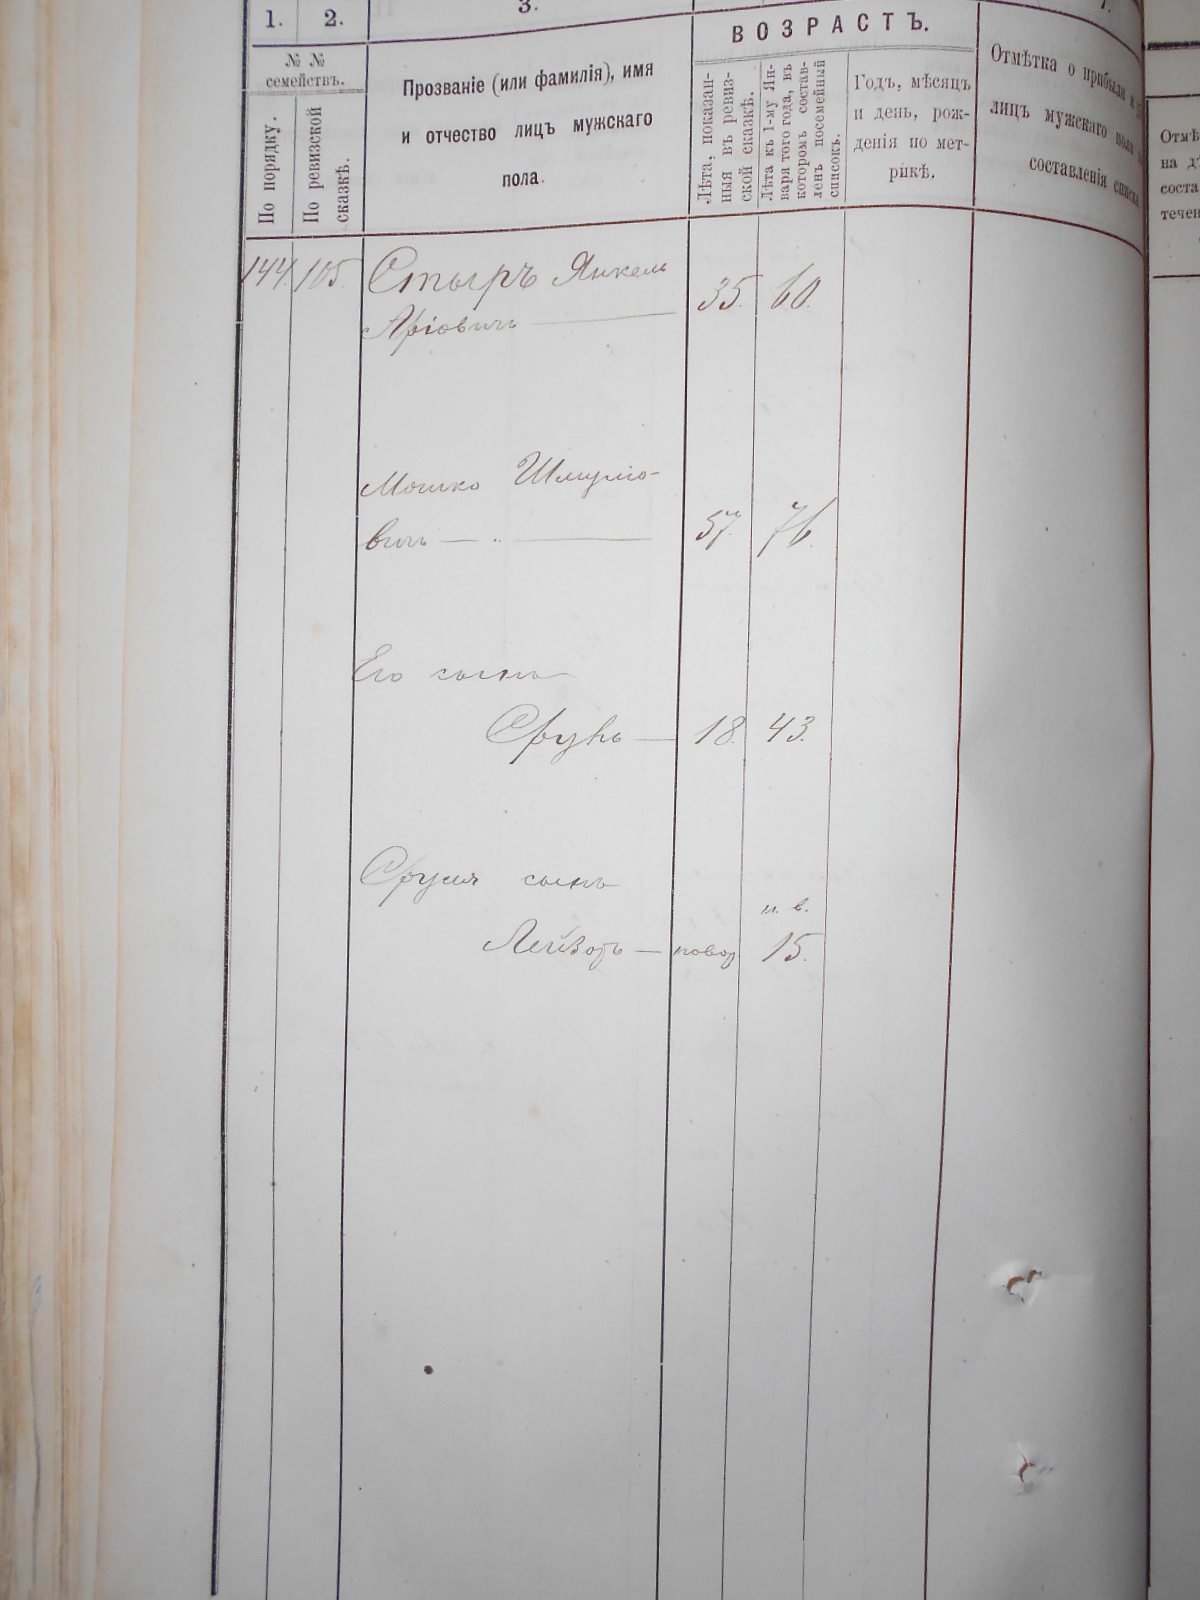 1. 2. 3.
№ №
семействъ.
По порядку.
По ревизской
сказкѣ.
Прозваніе (или фамилія), имя
и отчество лицъ мужскаго
пола.
ВОЗРАСТЪ.
Лѣта, показан-
ныя въ ревиз-
ской сказкѣ.
Лѣта къ 1-му Ян-
варя того года, въ
которомъ состав-
ленъ посемейный
списокъ.
Годъ, мѣсяцъ
и день, рож-
денія по мет-
рикѣ.
Отмѣтка о прибыли и
лицъ мужскаго пола
составленія списка
Отмѣ
на д
соста
течен
144. 105. Стыръ Янкель
Аріовичъ 35. 60.
Мошко Шмуліо-
вичъ 57. 76.
Его сынъ
Сруль 18. 43.
Сруля сынъ
Лейзоръ — новор 15.